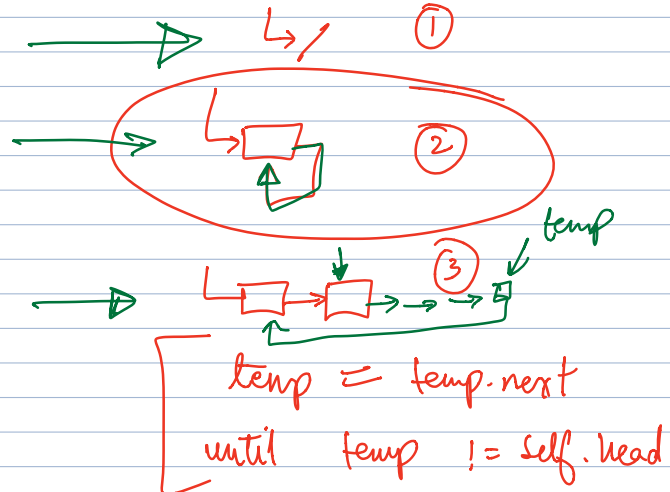 1
2
temp
3
temp = temp.next
until temp != self.head